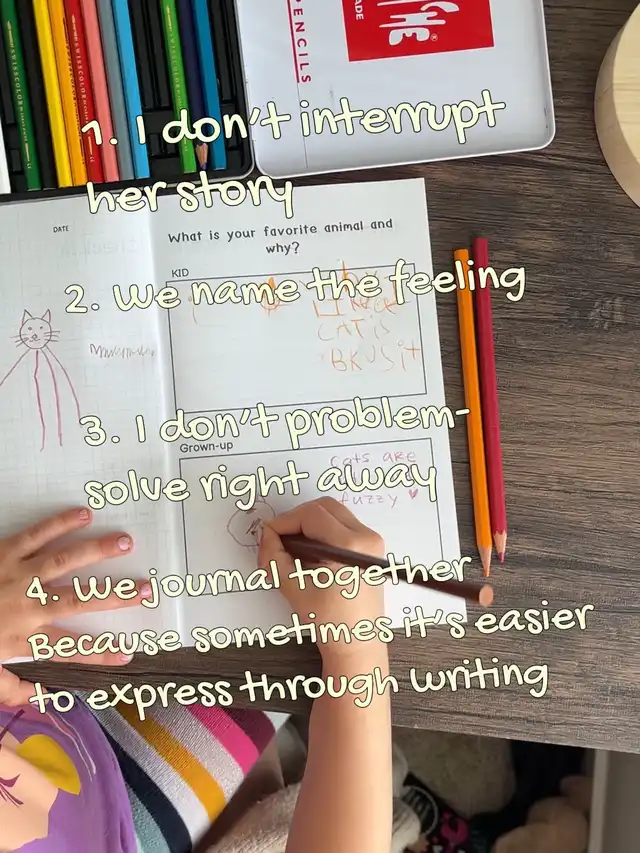 PENCILS
ADE
CHE®
SWISSCOLOR
SWISSCOLOR
SWISSCOLOR
1. I don't interrupt
her story
DATE
What is your favorite animal and
why?
KID
2. We name the feeling
CAT is
BKUSit
3. I don't problem-
solve right away
Grown-up
cats are
fuzzy
4. We journal together
Because sometimes it's easier
to express through writing